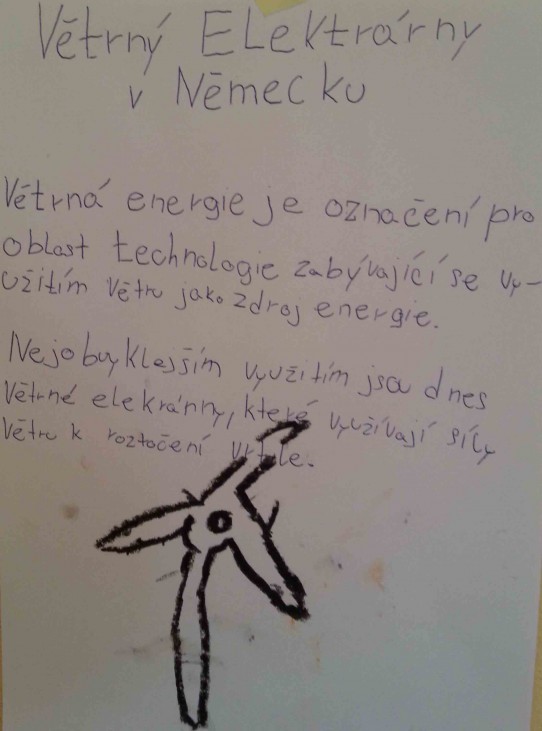 Větrný Elektrárny
v Německu
Větrná energie je označení pro
oblast technologie zabývající se vy-
užitím větru jako zdroj energie.
Nejobvyklejším využitím jsou dnes
větrné elekránny, které využívají síly
větru k roztočení vrtule.